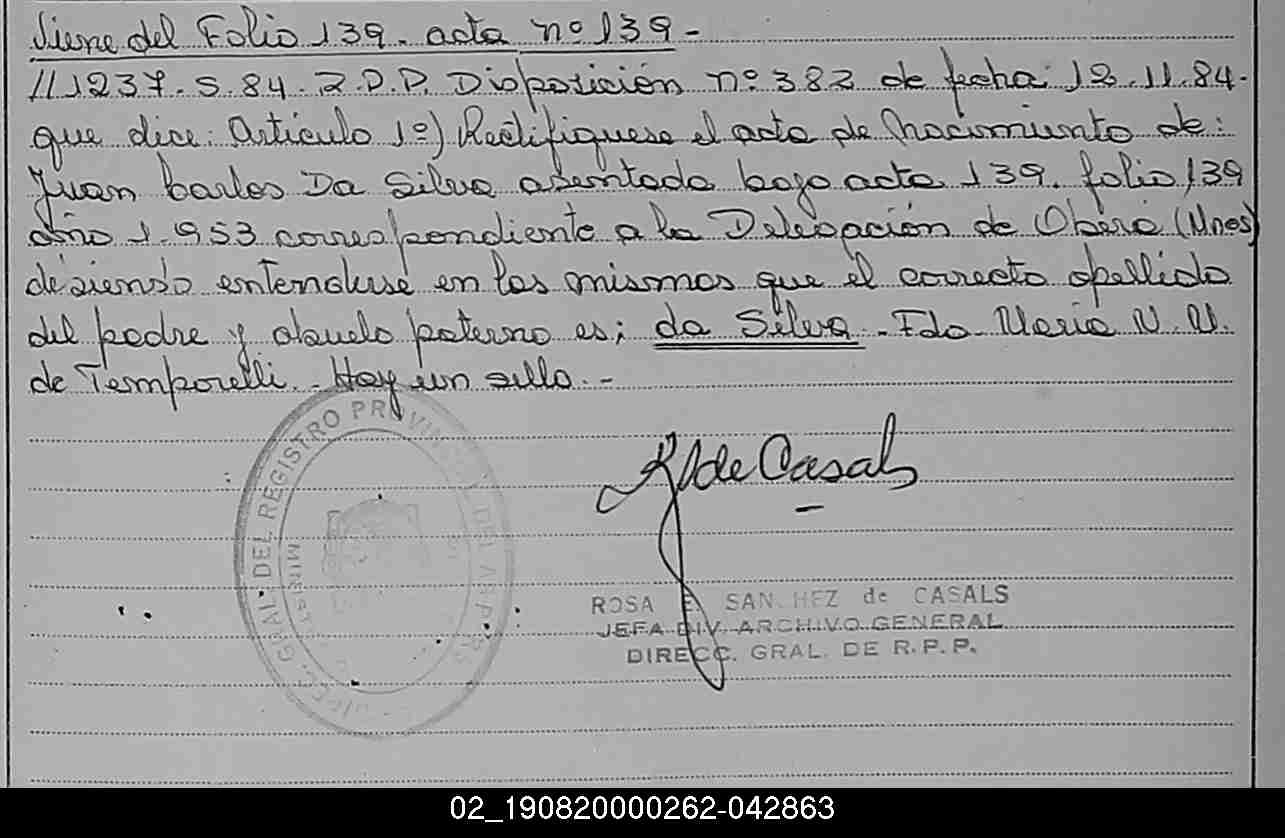 Viene del Folio 139. acta nº 139-
//1237. S. 84. R.P.P. Disposición nº 382 de fecha 12.11.84-
que dice: Artículo 1º) Rectifiquese el acta de Nacimiento de:
Juan Carlos Da Silva asentada bajo acta 139. folio 139
año 1.953 correspondiente a la Delegación de Oberá (Mnes)
debiendo entenderse en las mismas que el correcto apellido
del padre y abuelo paterno es; da Silva. Fdo. Maria
de Temporelli. Hay un sello.-
DIREC. GRAL. DEL REGISTRO PROVINCIAL DE LAS PERS
MINIST
R S de Casals
ROSA E. SANCHEZ de CASALS
JEFA DIV. ARCHIVO GENERAL
DIRECC. GRAL. DE R.P.P.
02_190820000262-042863